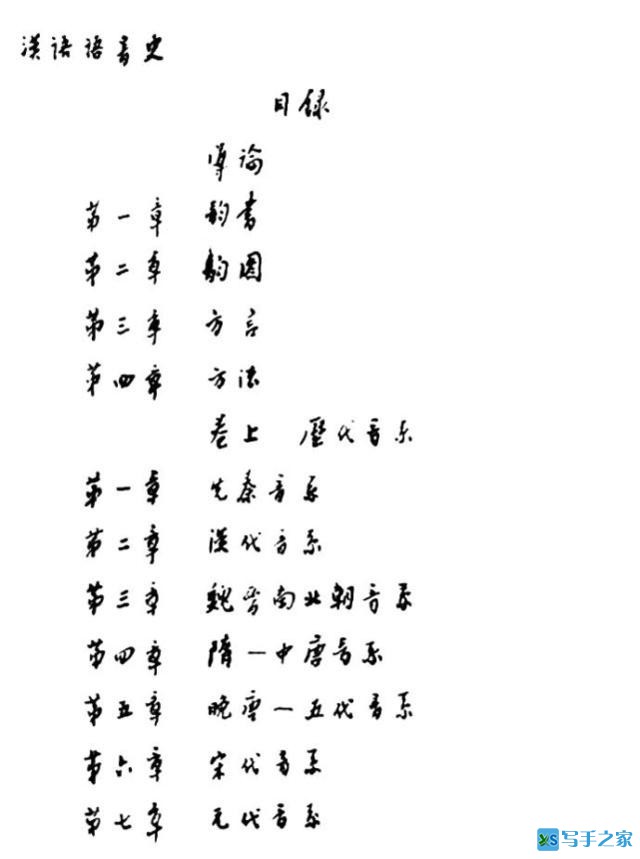 漢语语音史
目録
導论
第一章 韵书
第二章 韵图
第三章 方言
第四章 方法
卷上 歷代音系
第一章 先秦音系
第二章 漢代音系
第三章 魏晋南北朝音系
第四章 隋一中唐音系
第五章 晚唐一五代音系
第六章 宋代音系
第七章 元代音系
XS 写手之家